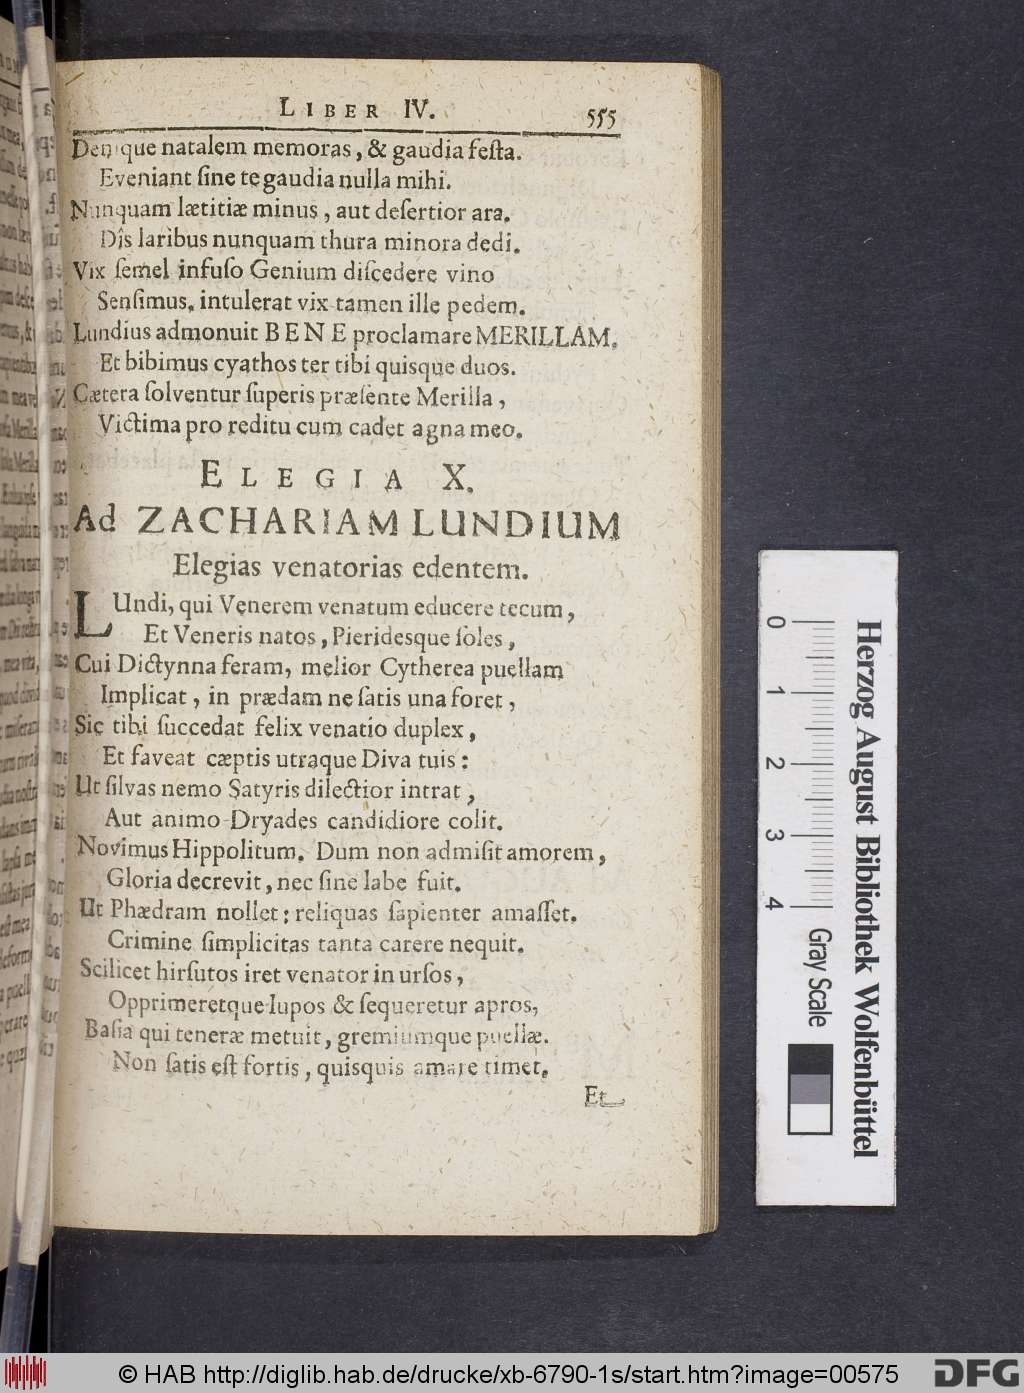 LIBER IV. 555
Denique natalem memoras, & gaudia feſta.
Eveniant ſine te gaudia nulla mihi.
Nunquam lætitiæ minus, aut deſertior ara.
Dîs laribus nunquam thura minora dedi.
Vix ſemel infuſo Genium diſcedere vino
Senſimus, intulerat vix tamen ille pedem.
Lundius admonuit BENE proclamare MERILLAM.
Et bibimus cyathos ter tibi quisque duos.
Cætera ſolventur ſuperis præſente Merilla,
Victima pro reditu cum cadet agna meo.
ELEGIA X.
Ad ZACHARIAM LUNDIUM
Elegias venatorias edentem.
LUndi, qui Venerem venatum educere tecum,
Et Veneris natos, Pieridesque ſoles,
Cui Dictynna feram, melior Cytherea puellam
Implicat, in prædam ne ſatis una foret,
Sic tibi ſuccedat felix venatio duplex,
Et faveat cæptis utraque Diva tuis:
Ut ſilvas nemo Satyris dilectior intrat,
Aut animo Dryades candidiore colit.
Novimus Hippolitum. Dum non admiſit amorem,
Gloria decrevit, nec ſine labe fuit.
Ut Phædram nollet: reliquas ſapienter amaſſet.
Crimine ſimplicitas tanta carere nequit.
Scilicet hirſutos iret venator in urſos,
Opprimeretque lupos & ſequeretur apros,
Baſia qui teneræ metuit, gremiumque puellæ.
Non ſatis eſt fortis, quisquis amare timet.
Et
Herzog August Bibliothek Wolfenbüttel
0 1 2 3 4 Gray Scale
© HAB http://diglib.hab.de/drucke/xb-6790-1s/start.htm?image=00575
DFG